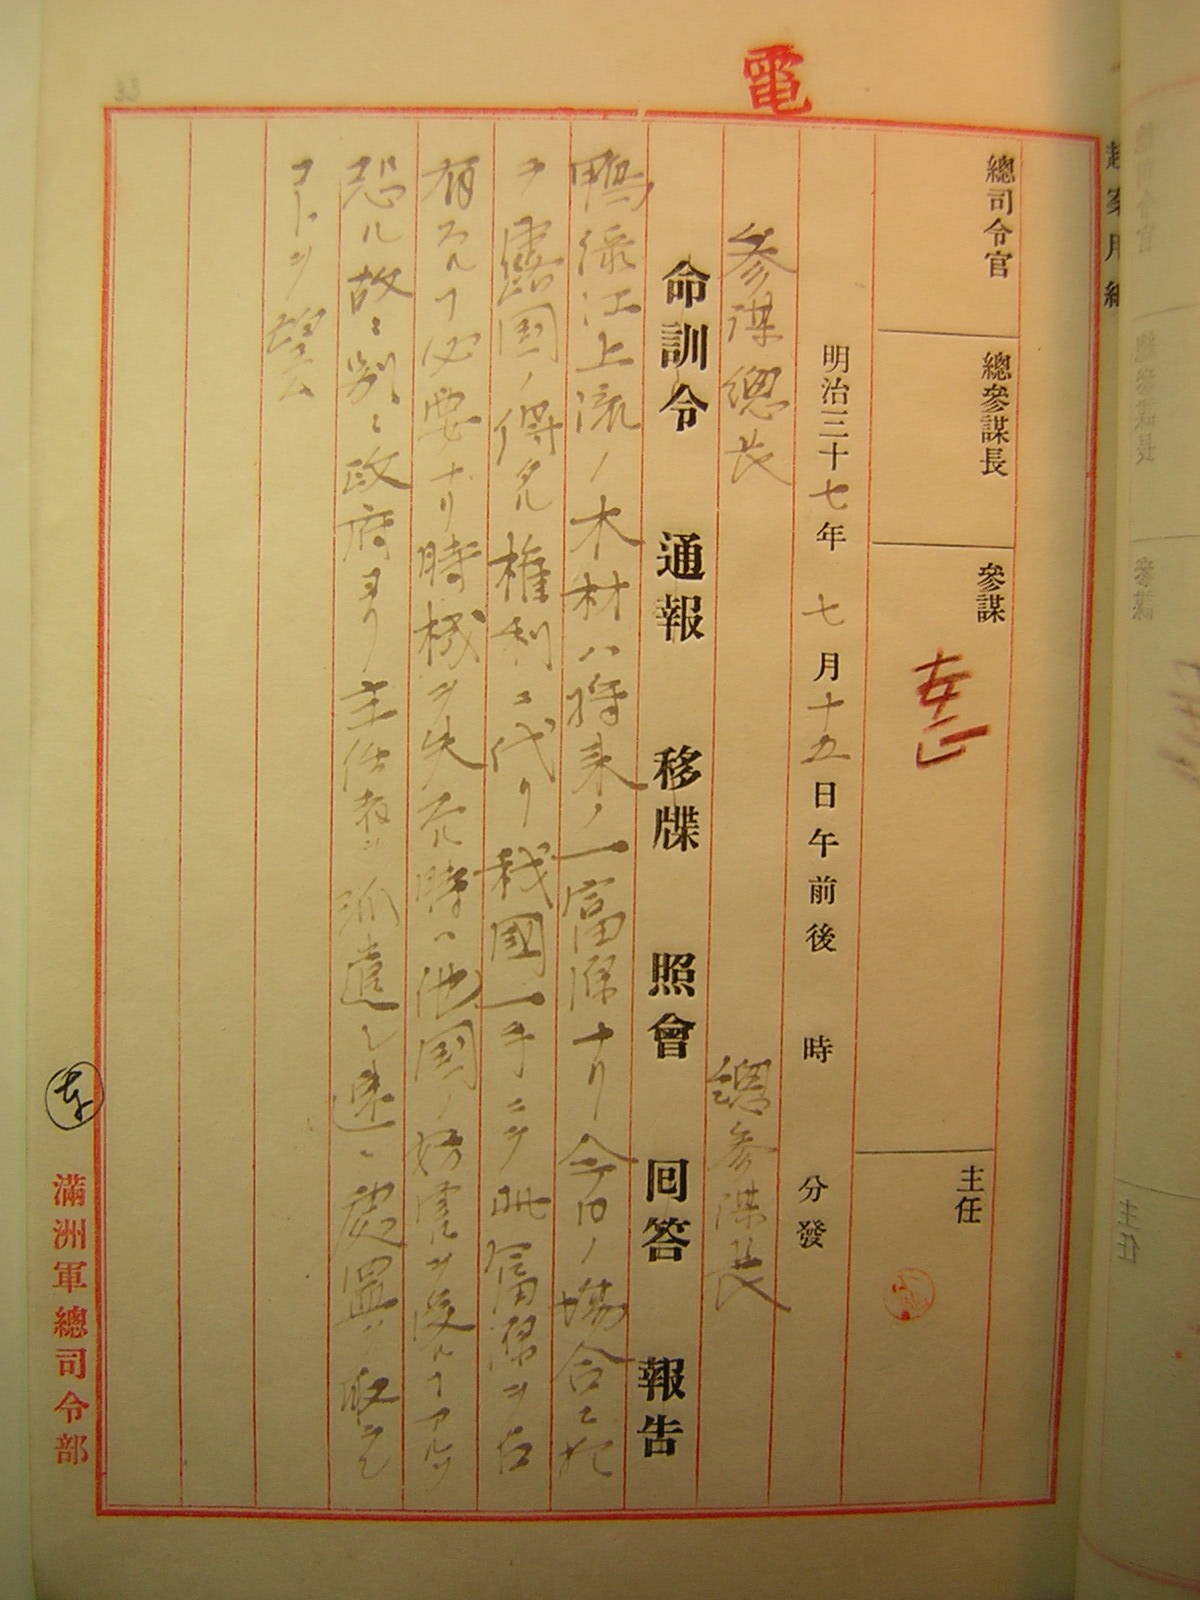 電
總司令官
總參謀長
參謀
主任
明治三十七年七月十五日午前後 時 分發
参謀總長 總参謀長
命訓令 通報 移牒 照會 回答 報告
鴨緑江上流ノ木材ハ将来ノ一富源ナリ今日ノ場合ニ於
テ露国ノ得タル権利ニ代リ我國一手ニテ此富源ヲ占
有スルヿ必要ナリ時機ヲ失スル時ハ他国ノ妨害ヲ受クルヿアルヲ
恐ル故ニ別ニ政府ヨリ主任者ヲ派遣シ速ニ処置ヲ取ラレ
コトヲ望ム
滿洲軍總司令部